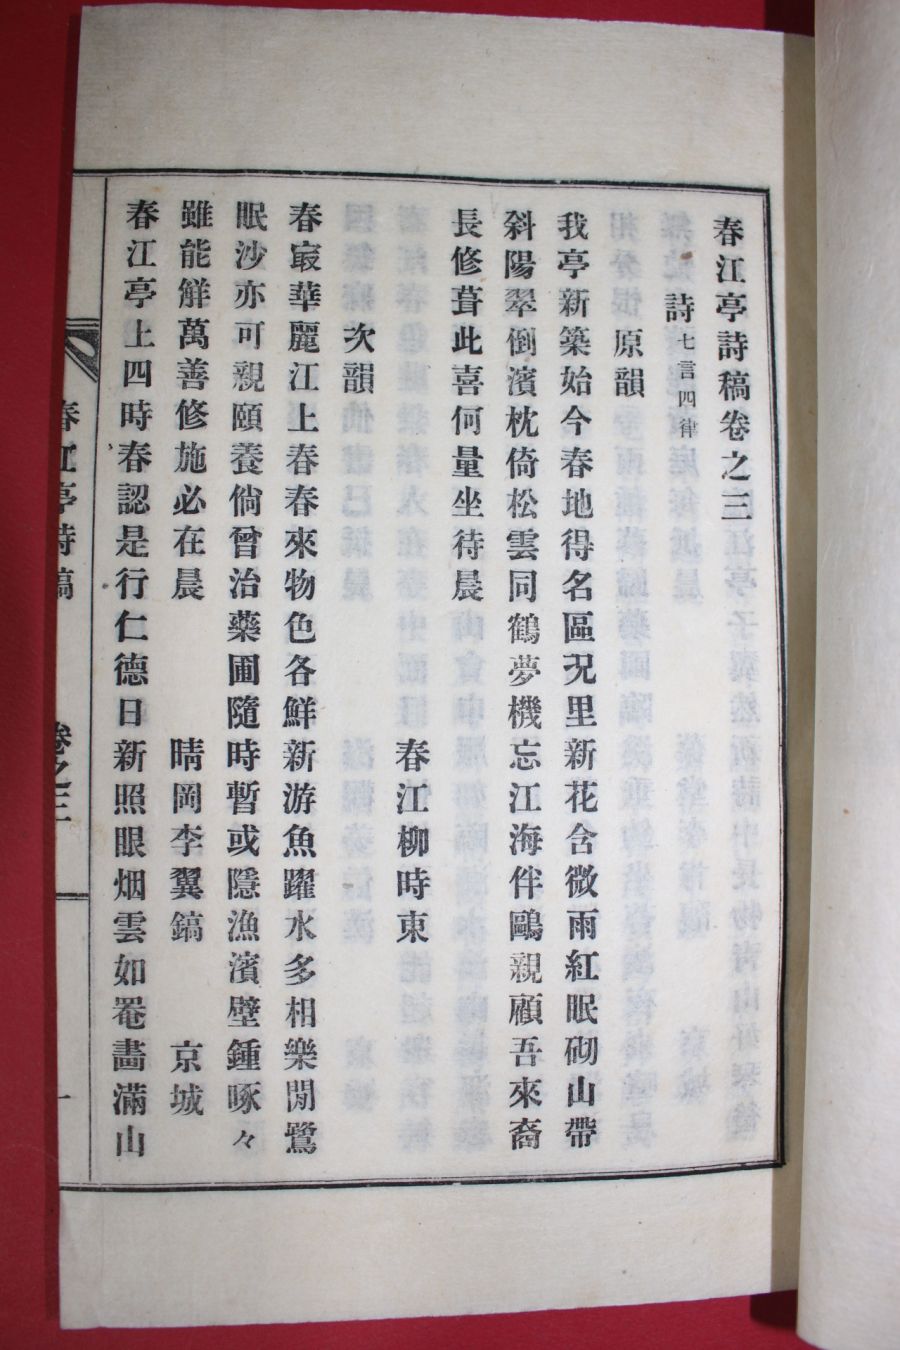 春江亭詩稿卷之三
詩七言四律
原韻
我亭新築始今春地得名區況里新花含微雨紅眠砌山帶
斜陽翠倒濱枕倚松雲同鶴夢機忘江海伴鷗親顧吾來裔
長修葺此喜何量坐待晨
春江柳時東
次韻
春㝡華麗江上春春來物色各鮮新游魚躍水多相樂閒鷺
眠沙亦可親頤養倘曾治藥圃隨時暫或隱漁濱壁鍾啄々
雖能鮮萬善修施必在晨 晴岡李翼鎬 京城
春江亭上四時春認是行仁德日新照眼烟雲如罨畵滿山
春江亭詩稿 卷之三 一